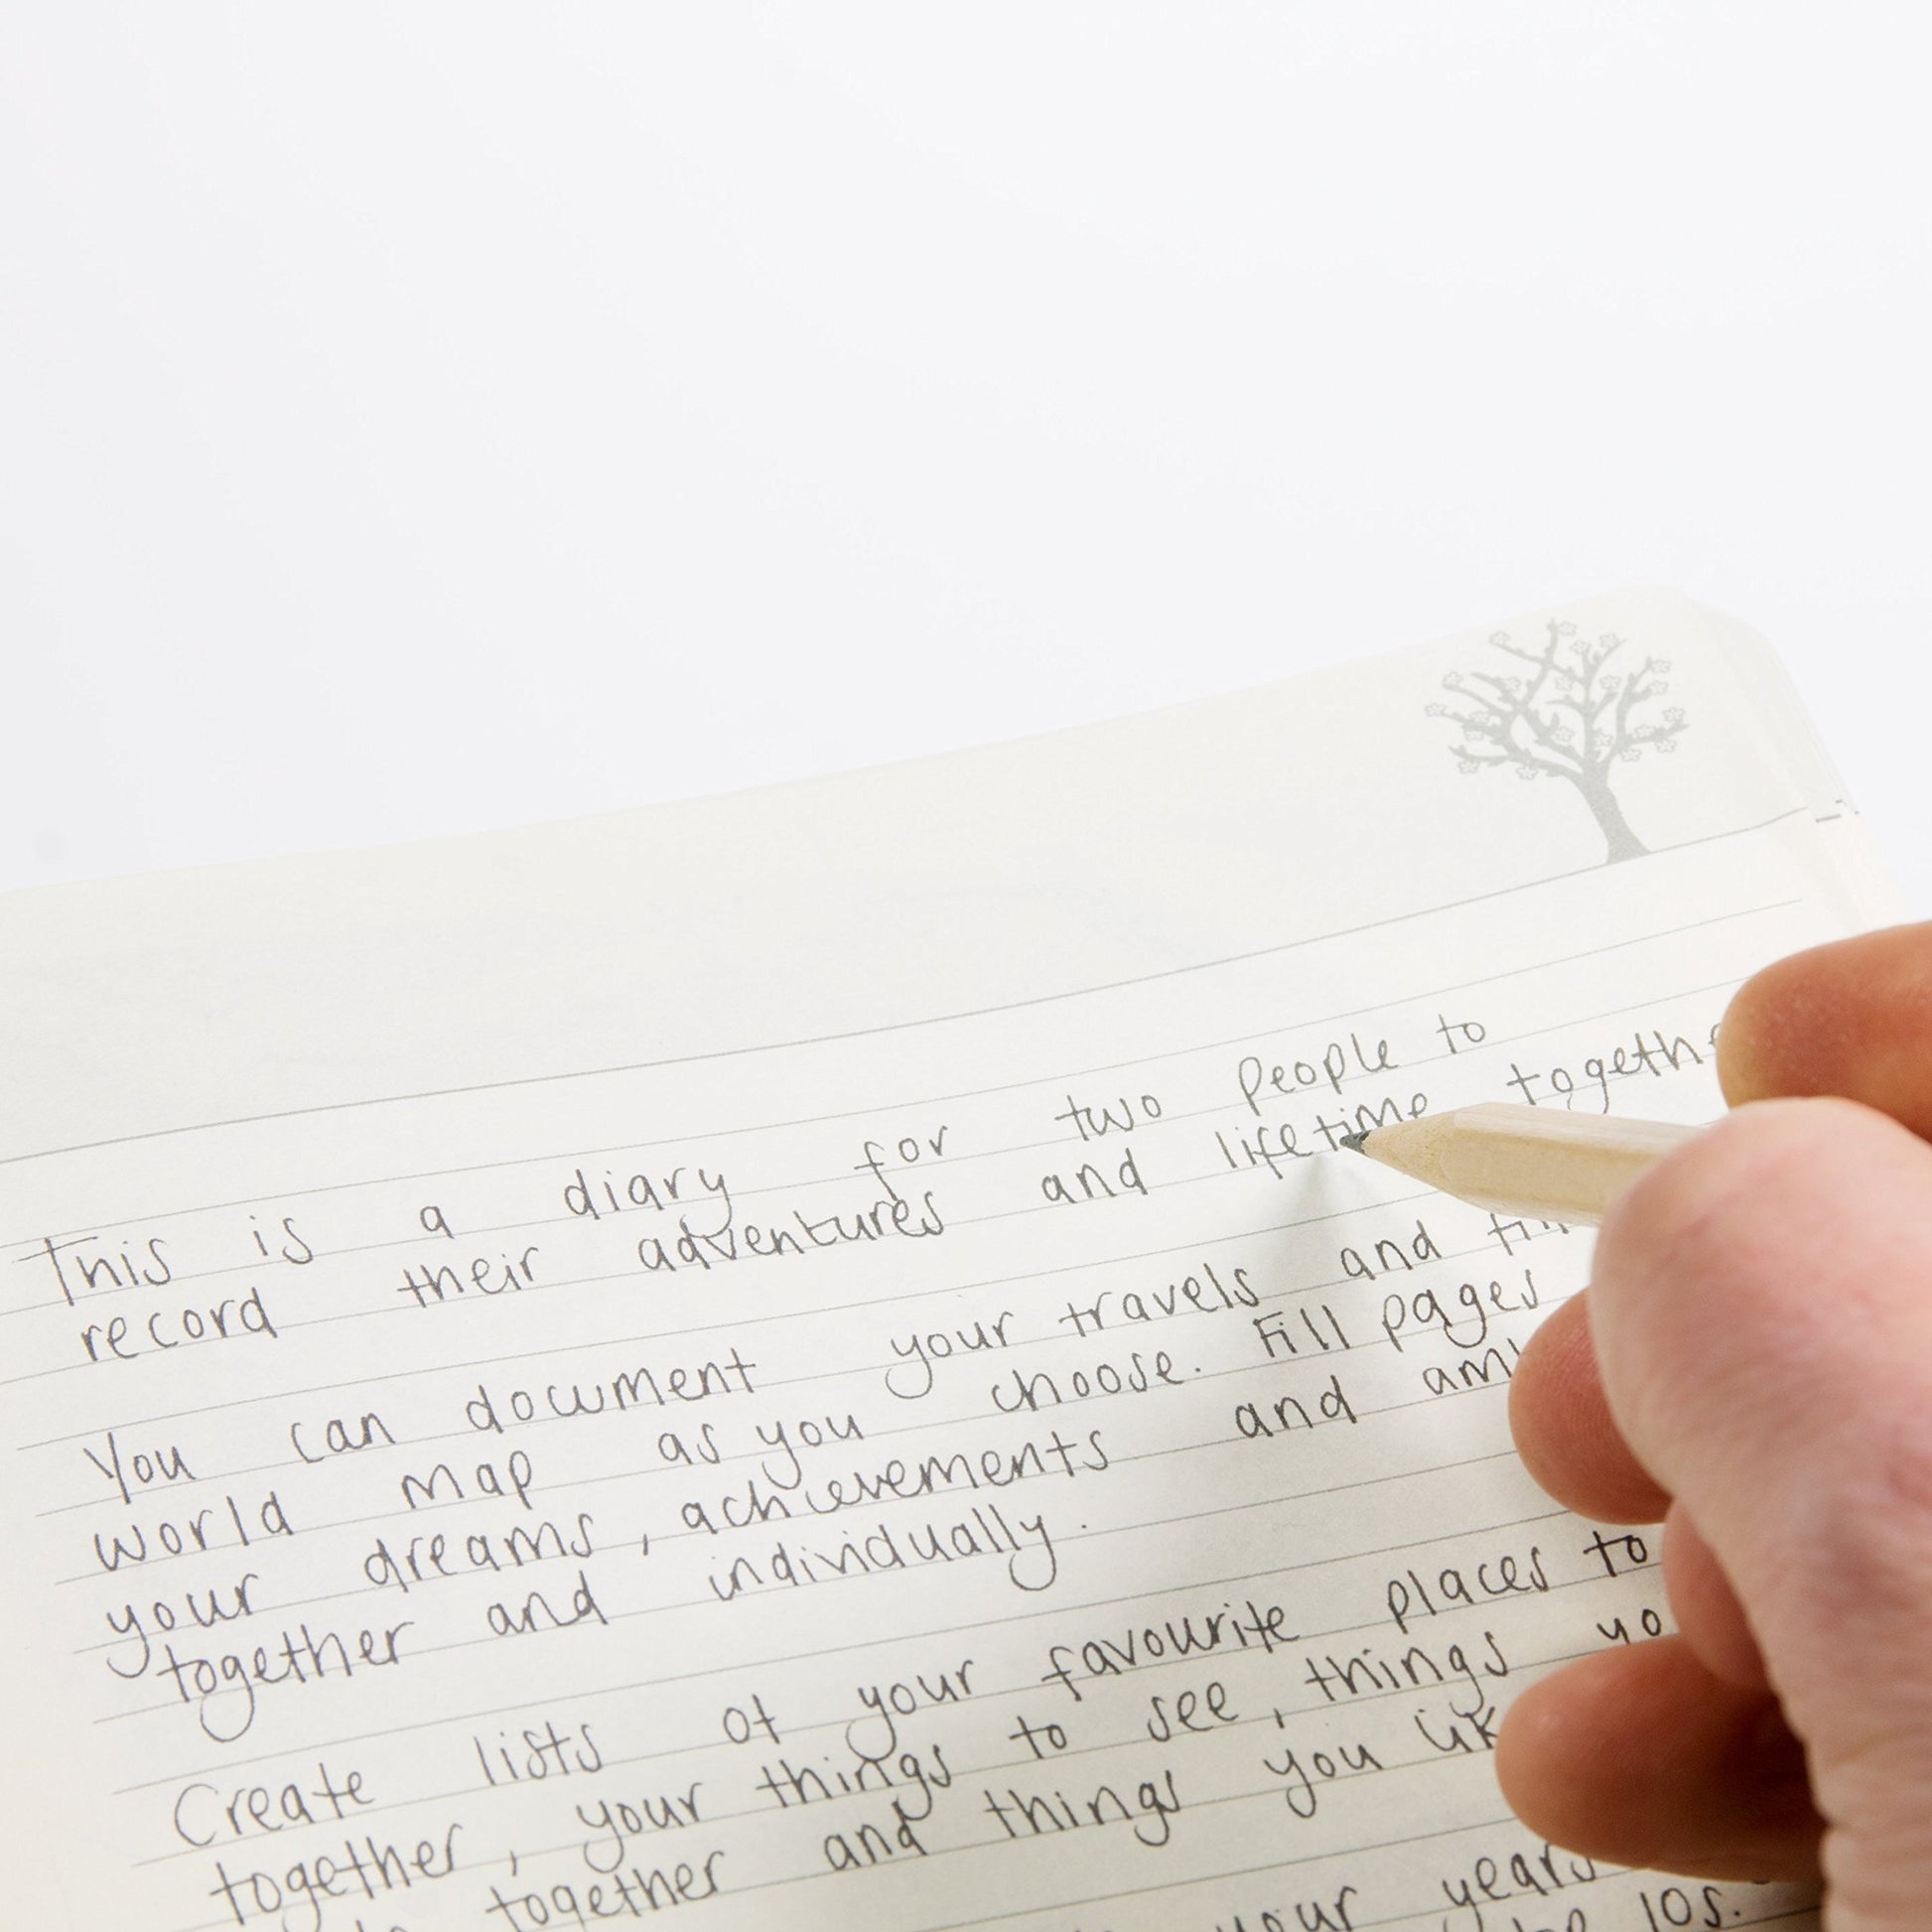 This is a diary for two people to
record their adventures and lifetime
You can document your travels and
world map as you choose. Fill pages
your dreams, achievements and
together and individually.
Create lists of your favourite places to
together, your things to see, things
together and things you
your years